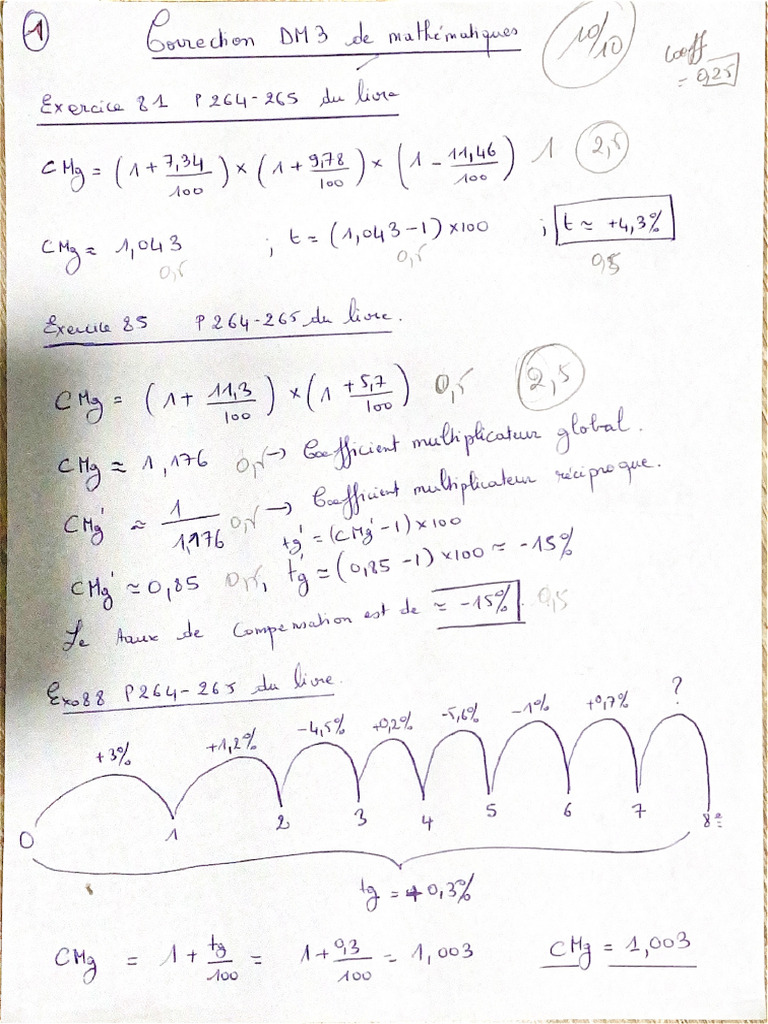 1
Correction DM3 de mathématiques
10/10
coeff
= 0,25
Exercice 81 P264-265 du livre
CMg = (1 + 7,34/100) × (1 + 9,78/100) × (1 - 11,46/100) 1 2,5
CMg ≈ 1,043 ; t = (1,043-1) ×100 ; t ≈ +4,3%
0,5 0,5 0,5
Exercice 85 P264-265 du livre.
CMg = (1+ 11,3/100) × (1 + 5,7/100) 0,5 2,5
CMg ≈ 1,176 0,5 → Coefficient multiplicateur global.
CMg' ≈ 1/1,176 0,5 → Coefficient multiplicateur réciproque.
tg' = (CMg' -1) ×100
CMg' ≈ 0,85 0,5, tg' ≈ (0,85 -1) ×100 ≈ -15%
Le taux de compensation est de ≈ -15%. 0,5
Exo 88 P264-265 du livre.
+3% +1,2% -4,5% +0,2% -5,6% -1% +0,7% ?
0 1 2 3 4 5 6 7 8
tg = +0,3%
CMg = 1 + tg/100 = 1 + 0,3/100 = 1,003 CMg = 1,003